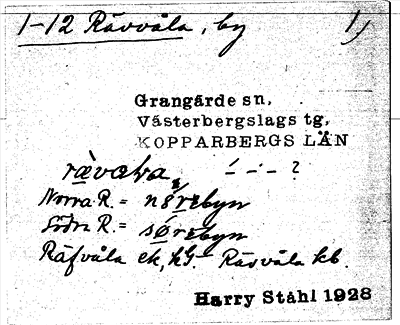 1-12 Rävvåla, by 1)
Grangärde sn,
Västerbergslags tg,
KOPPARBERGS LÄN
Norra R. = nørebyn
Södra R. = sørebyn
Räfvåla ek, hG. Rävvåla kb.
Harry Ståhl 1928